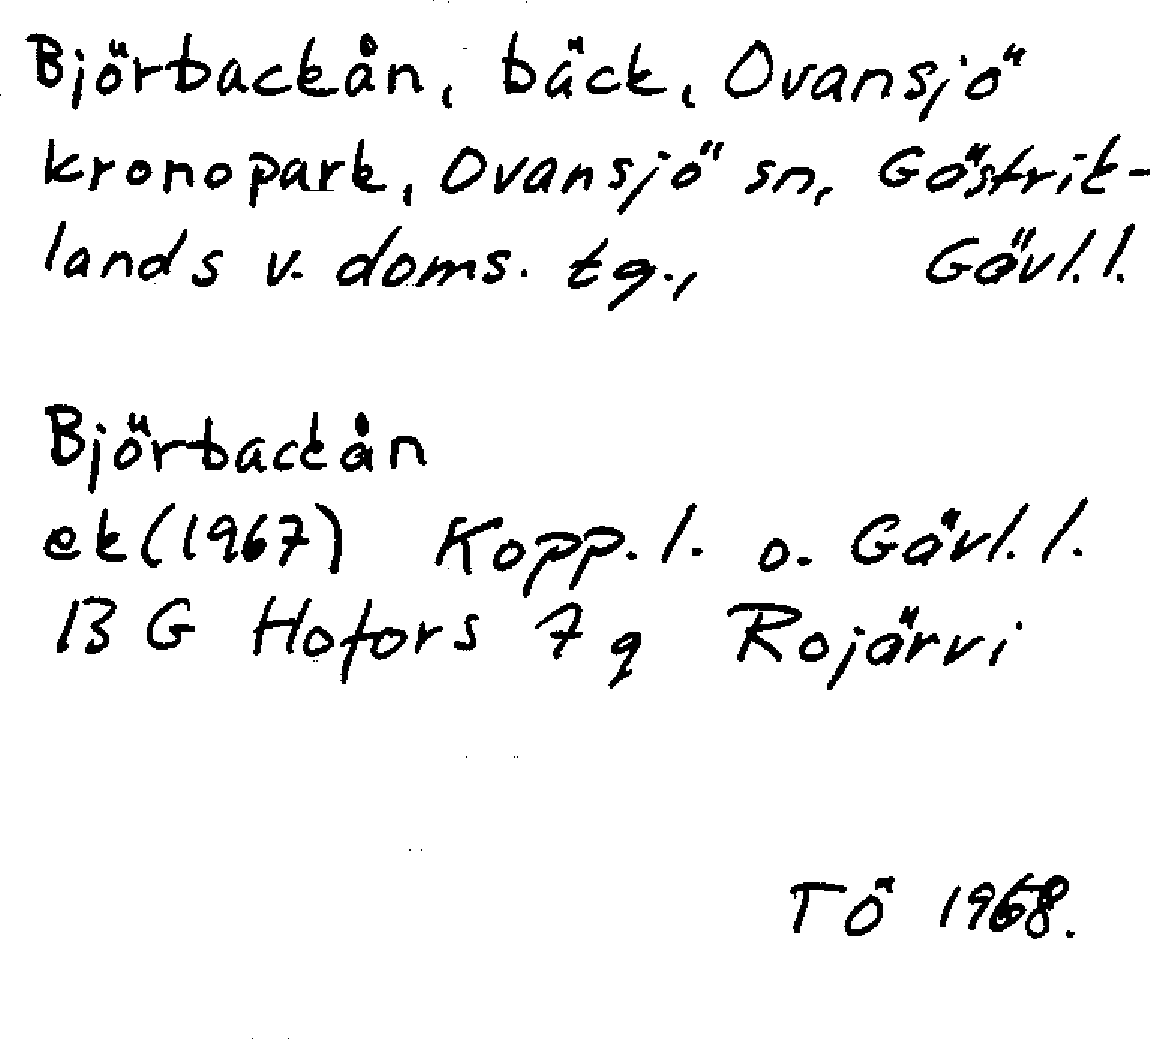 Björbackån, bäck, Ovansjö
kronopark, Ovansjö sn, Gästrik-
lands v. doms. tg., Gävl. l.
Björbackån
ek (1967) Kopp. l. o. Gävl. l.
13 G Hofors 7 g Rojärvi
TÖ 1968.